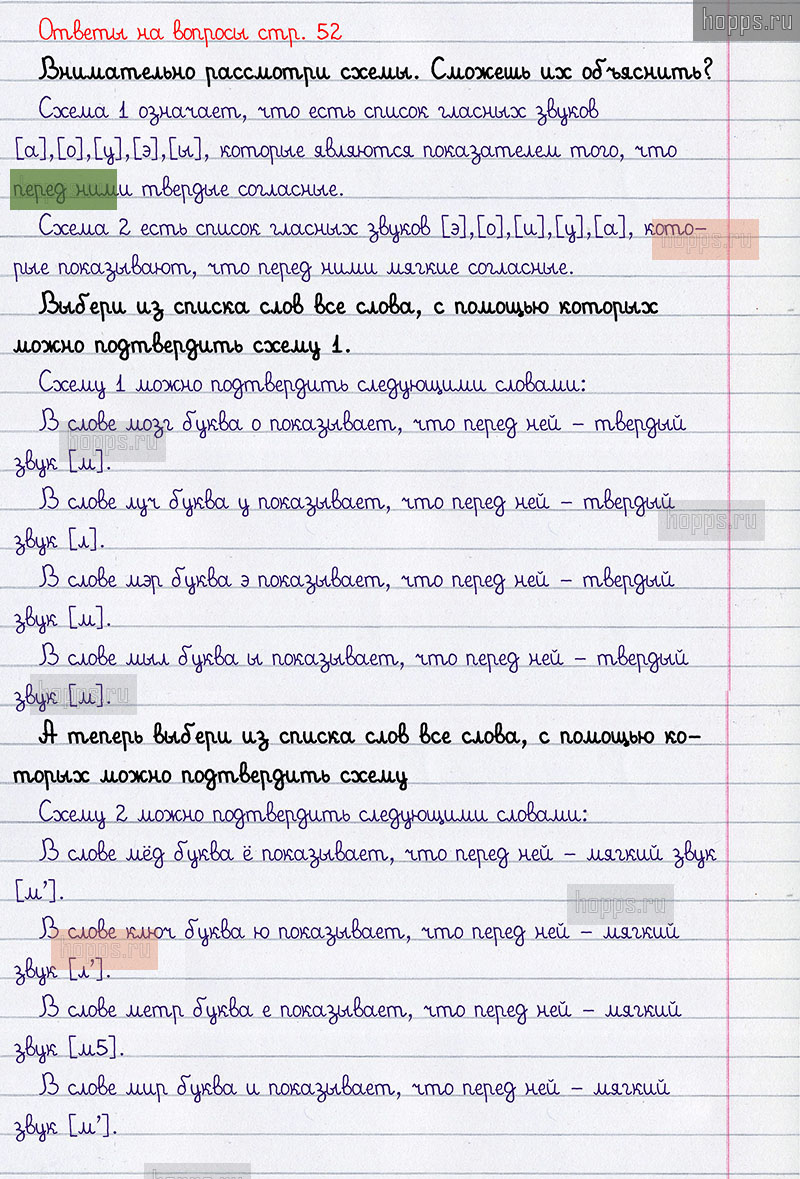 hopps.ru
Ответы на вопросы стр. 52
Внимательно рассмотри схемы. Сможешь их объяснить?
Схема 1 означает, что есть список гласных звуков
[а],[о],[у],[э],[ы], которые являются показателем того, что
перед ними твердые согласные.
Схема 2 есть список гласных звуков [э],[о],[и],[у],[а], кото-
hopps.ru
рые показывают, что перед ними мягкие согласные.
Выбери из списка слов все слова, с помощью которых
можно подтвердить схему 1.
Схему 1 можно подтвердить следующими словами:
В слове мозг буква о показывает, что перед ней – твердый
hopps.ru
звук [м].
В слове луч буква у показывает, что перед ней – твердый
hopps.ru
звук [л].
В слове мэр буква э показывает, что перед ней – твердый
звук [м].
В слове мыл буква ы показывает, что перед ней – твердый
звук [м].
hopps.ru
А теперь выбери из списка слов все слова, с помощью ко-
торых можно подтвердить схему
Схему 2 можно подтвердить следующими словами:
В слове мёд буква ё показывает, что перед ней – мягкий звук
[м’].
hopps.ru
В слове ключ буква ю показывает, что перед ней – мягкий
hopps.ru
звук [л’].
В слове метр буква е показывает, что перед ней – мягкий
звук [м5].
В слове мир буква и показывает, что перед ней – мягкий
звук [м’].
hopps.ru